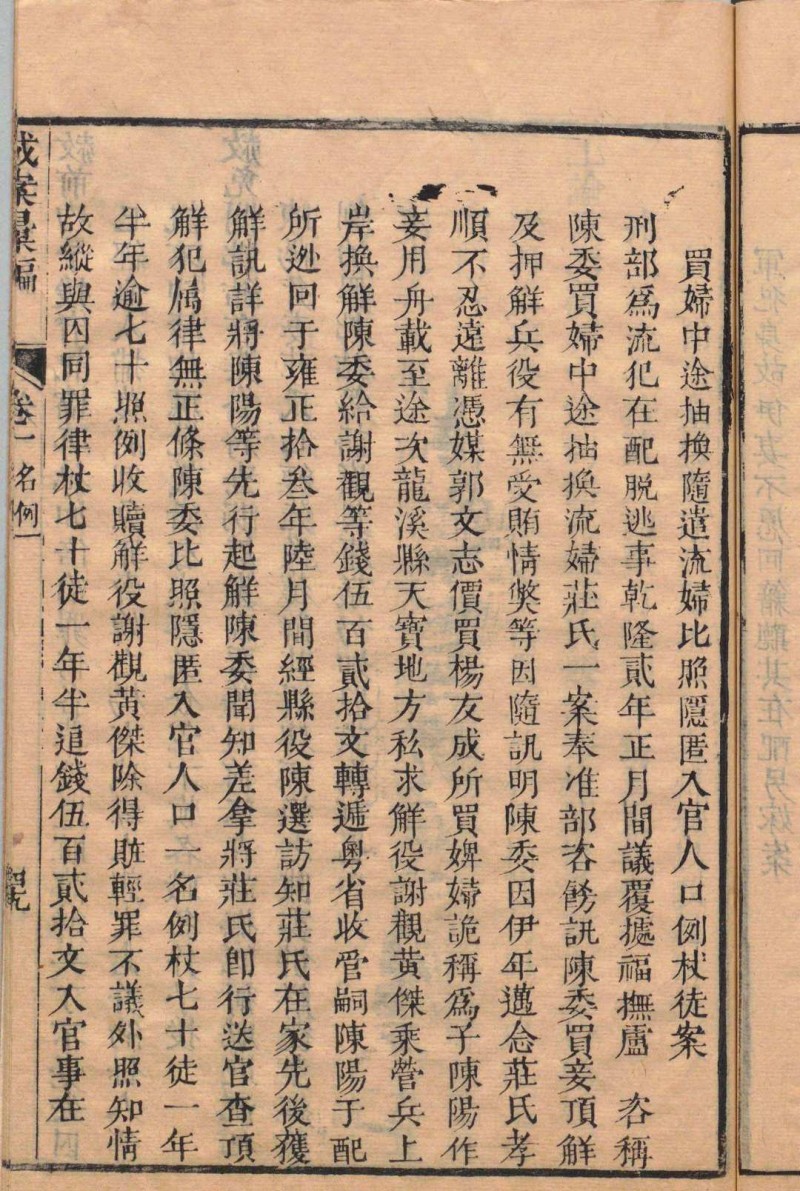 買婦中途抽換隨遣流婦比照隱匿入官人口例杖徒案
刑部爲流犯在配脫逃事乾隆貳年正月間議覆據福撫盧　咨稱
陳委買婦中途抽換流婦莊氏一案奉准部咨飭訊陳委買妾頂解
及押解兵役有無受賄情獘等因隨訊明陳委因伊年邁念莊氏孝
順不忍遠離憑媒郭文志價買楊友成所買婢婦詭稱爲子陳陽作
妾用舟載至途次龍溪縣天寶地方私求解役謝觀黃傑乘營兵上
岸換解陳委給謝觀等錢伍百貳拾文轉遞粵省收管嗣陳陽于配
所迯回于雍正拾叁年陸月間經縣役陳選訪知莊氏在家先後獲
解訊詳將陳陽等先行起解陳委聞知差拿將莊氏卽行送官查頂
解犯屬律無正條陳委比照隱匿入官人口一名例杖七十徒一年
半年逾七十照例收贖解役謝觀黃傑除得賍輕罪不議外照知情
故縱與囚同罪律杖七十徒一年半追錢伍百貳拾文入官事在
成案彙編
卷一
名例一